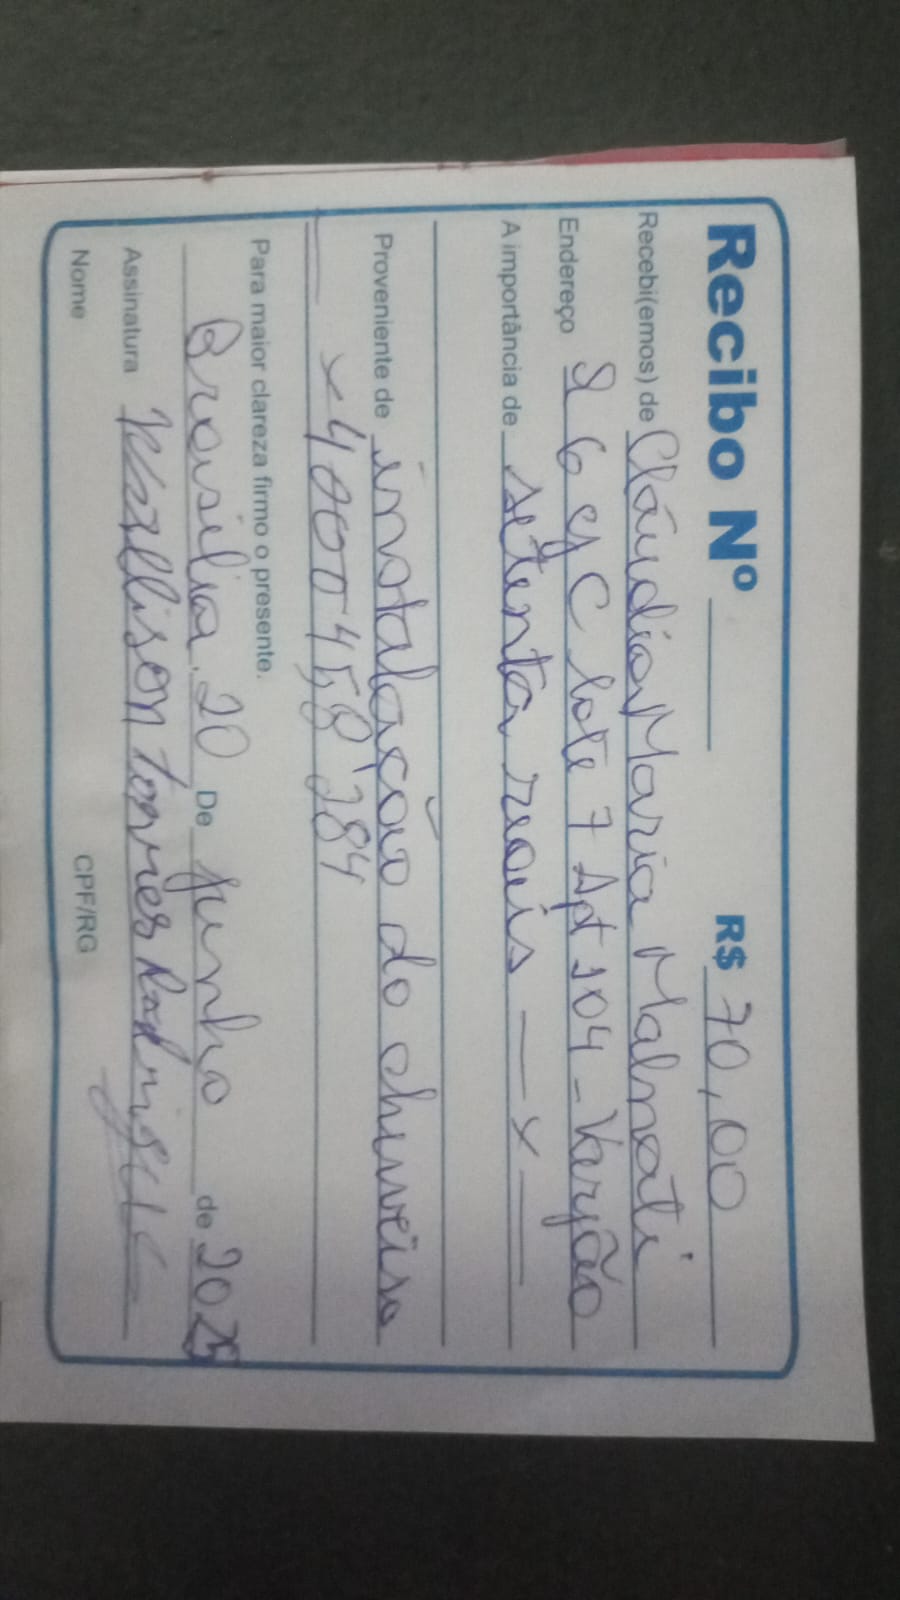 Recibo Nº R$ 70,00
Recebi(emos) de Cláudia Maria Malnati
Endereço 6 cj C lote 7 Apt 104 - Varjão
A importância de setenta reais — x —
Proveniente de instalação do chuveiro
Para maior clareza firmo o presente.
Brasilia, 20 De junho de 2025
Assinatura torres
Nome CPF/RG